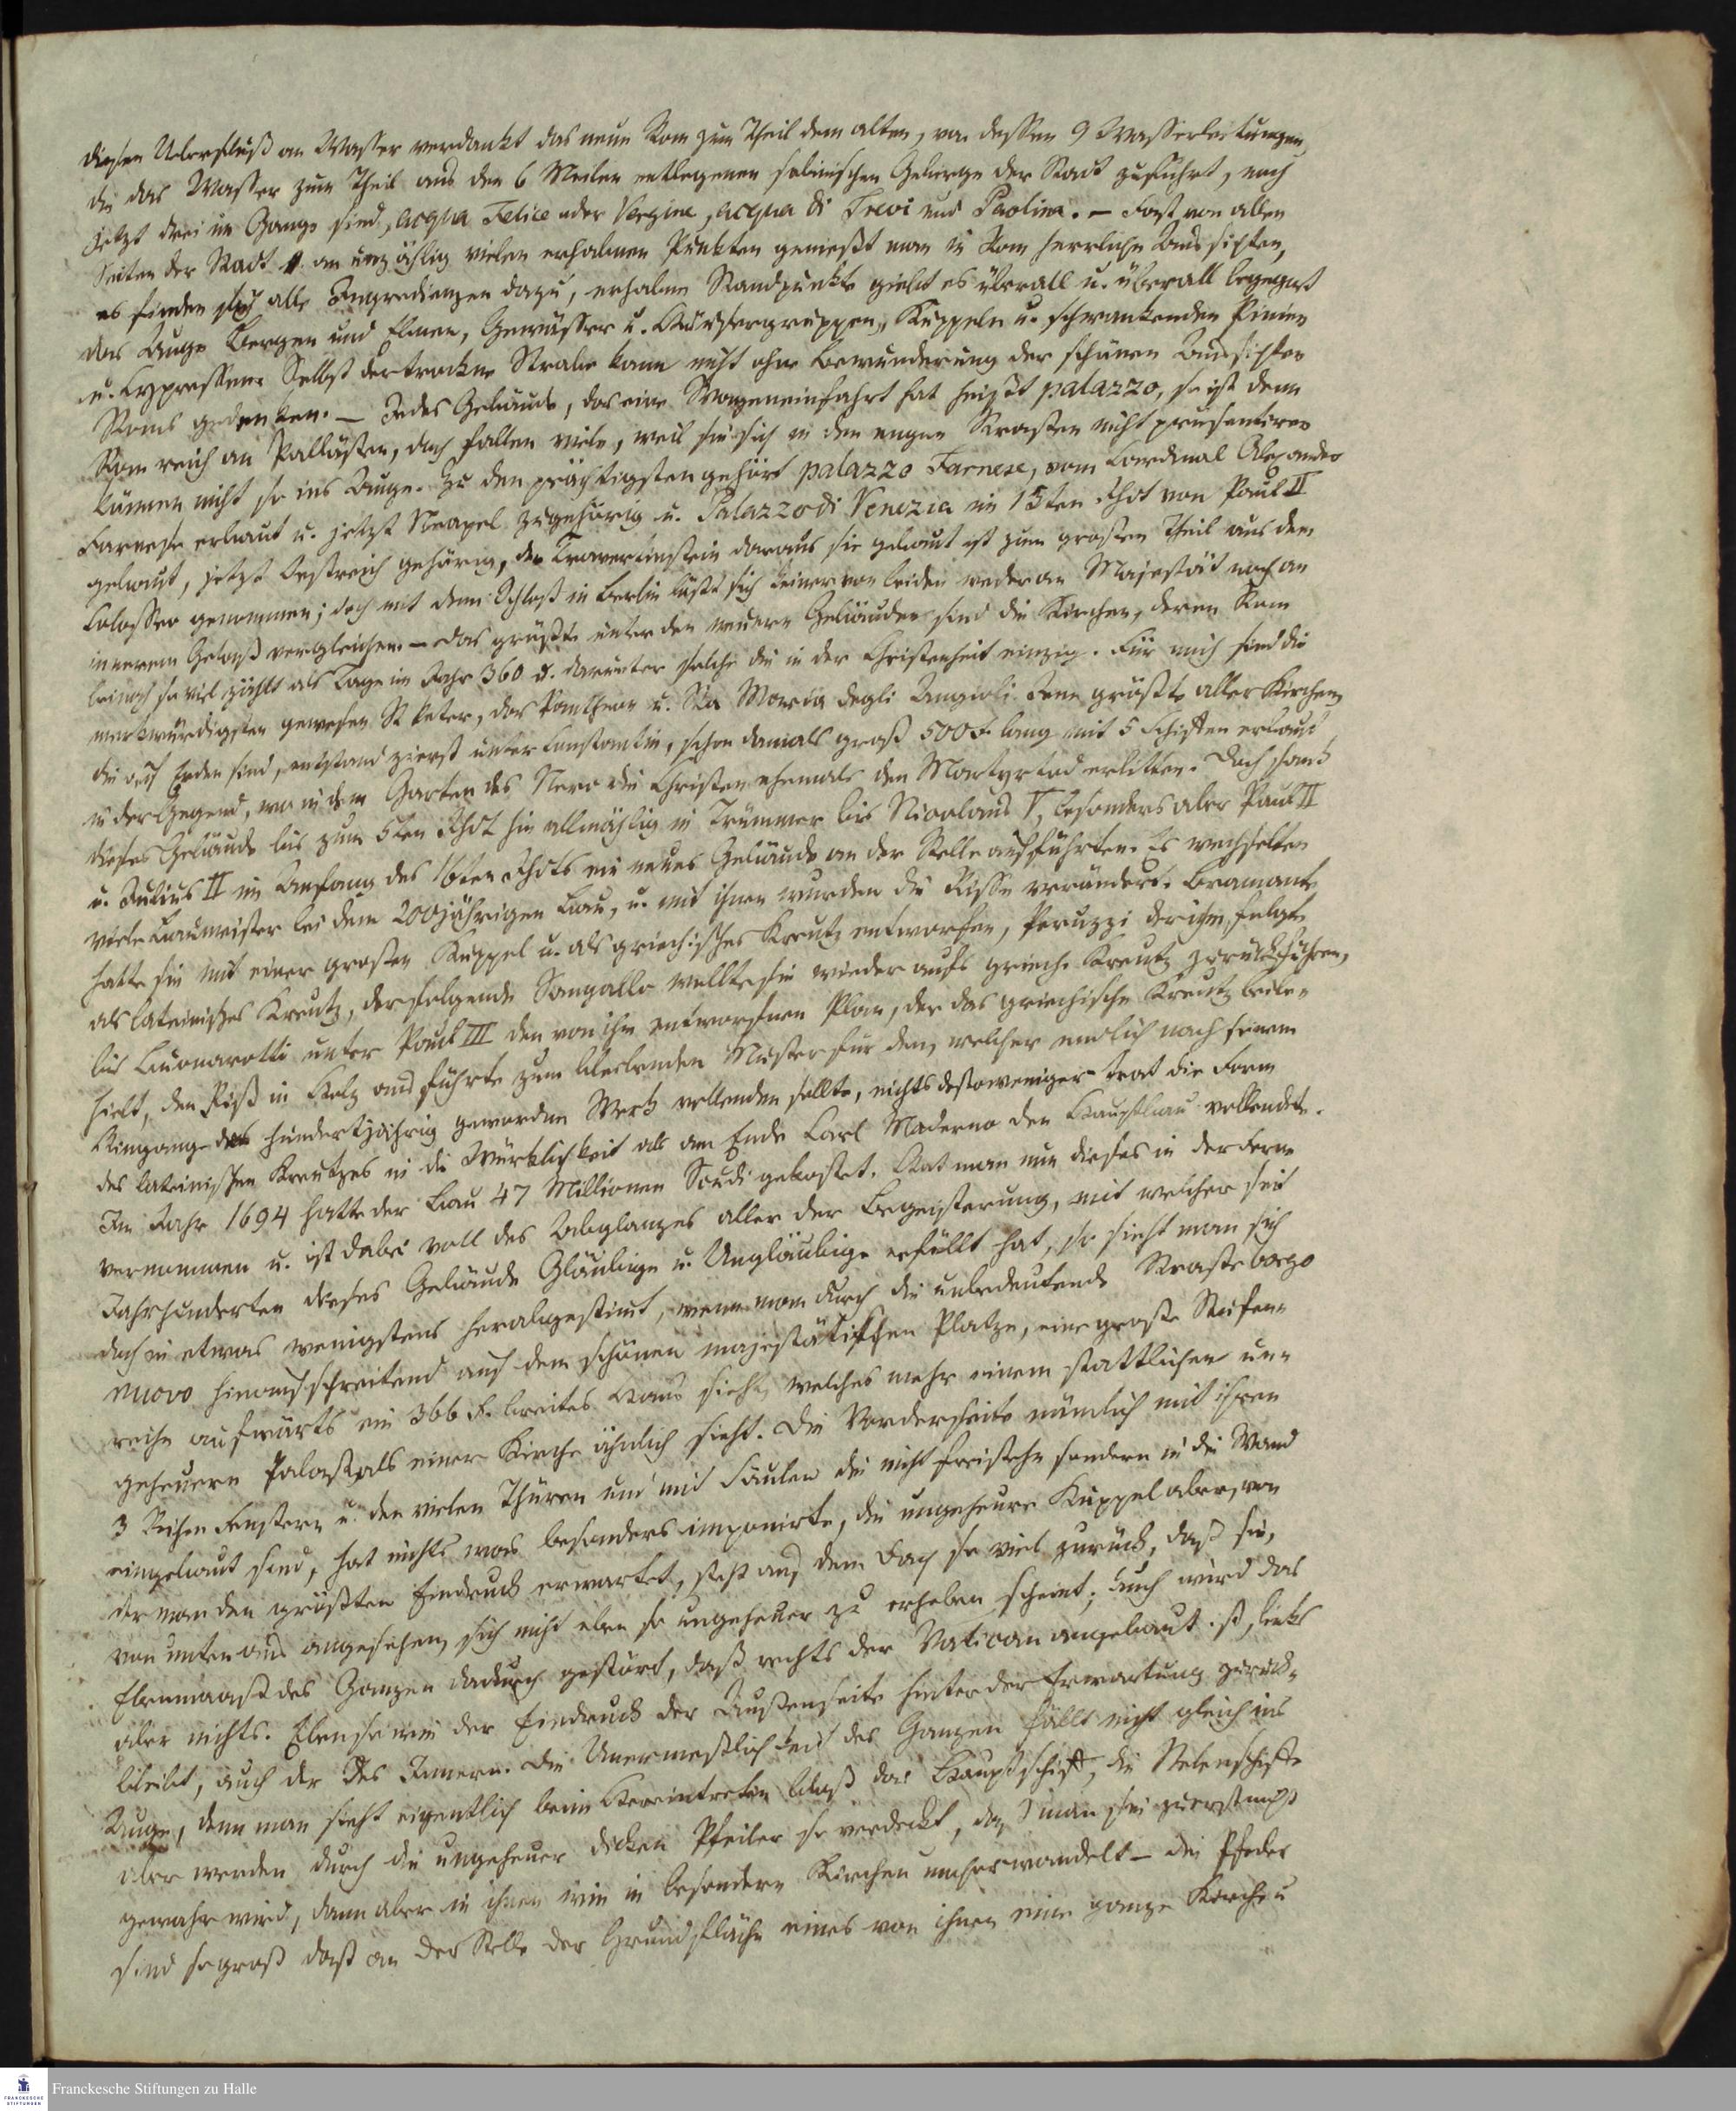 diesen Ueberfluß an Wasser verdankt das neue Rom zum Theil dem alten, von dessen 9 Wasserleitungen,
die das Wasser zum Theil aus den 6 Meilen entlegenen sabinischen Gebirge der Stadt zuführt, noch
jetzt drei im Gange sind, acqua Felice oder Vergine, acqua di Trevi und Paolina. – Fast von allen
Seiten der Stadt u. an unzählig vielen erhabnen Punkten genießt man in Rom herrliche Aussichten,
es finden sich alle Ingredienzen dazu, erhabne Standpunkte giebt es überall u. überall begegnet
das Auge Bergen und Ebnen, Gewässer u. Häusergruppen, Kuppeln u. schwankenden Pinien
u. Cypressen. Selbst der trockne Strabo kann nicht ohne Bewunderung der schönen Aussichten
Roms gedenken. – Jedes Gebäude, das eine Wageneinfahrt hat heißt palazzo, so ist denn
Rom reich an Pallästen, doch fallen viele, weil sie sich in den engen Straßen nicht präsentiren
können nicht so ins Auge. Zu den prächtigsten gehört palazzo Farnese, vom Cardinal Alexander
Farnese erbaut u. jetzt Neapel zugehörig u. Palazzo di Venezia im 15ten Jhdt von Paul II
gebaut, jetzt Oestreich gehörig, der Travertinstein daraus sie gebaut ist zum großen Theil aus dem
Colosseo genommen; doch mit dem Schloß in Berlin läßt sich keiner von beiden weder an Majestät noch an
innerem Gelaß vergleichen. – Das größte unter den neuern Gebäuden sind die Kirchen, deren Rom
beinah so viel zählt als Tage im Jahr 360 u. darunter solche die in der Christenheit einzig. Für mich sind die
merkwürdigsten gewesen St Peter, das Pantheon u. Sta Maria degli Angioli. Jene größte aller Kirchen,
die auf Erden sind, entstand zuerst unter Constantin, schon damals groß 500 F. lang mit 5 Schiffen erbaut
in der Gegend, wo in dem Garten des Nero die Christen ehemals den Martyrtod erlitten. Doch sank
dieses Gebäude bis zum 5ten Jhdt hin allmählig in Trümmer bis Nicolaus V, besonders aber Paul II
u. Julius II im Anfang des 16ten Jhdts ein neues Gebäude an der Stelle aufführten. Es wechselten
viele Baumeister bei dem 200jährigen Bau, u. mit ihnen wurden die Risse verändert. Bramante
hatte sie mit einer großen Kuppel u. als griechisches Kreutz entworfen, Peruzzi der ihm folgte
als lateinisches Kreutz, der folgende Sangallo wollte sie wieder aufs griech. Kreutz zurückführen,
bis Buonarotti unter Paul III den von ihm entworfnen Plan, der das griechische Kreutz beibe-
hielt, den Riß in Holz ausführte zum bleibenden Muster für den, welcher endlich nach seinem
Hingange das hundertjährig gewordne Werk vollenden sollte, nichts destoweniger trat die Form
des lateinischen Kreutzes in die Würklichkeit als am Ende Carl Maderno den Hauptbau vollendete.
Im Jahr 1694 hatte der Bau 47 Millionen Scudi gekostet. Hat man nun dieses in der Ferne
vernommen u. ist dabei voll des Abglanzes aller der Begeisterung, mit welcher seit
Jahrhunderten dieses Gebäude Gläubige u. Ungläubige erfüllt hat, so sieht man sich
doch in etwas wenigstens herabgestimt, wenn man durch die unbedeutende Straße borgo
nuovo hinaufschreitend auf dem schönen majestätischen Platze, eine große Stufen-
reihe aufwärts ein 366 F. breites Haus sieht, welches mehr einem stattlichen un-
geheuern Palast, als einer Kirche ähnlich sieht. Die Vorderseite nämlich mit ihren
3 Reihen Fenstern u. den vielen Thüren und mit Säulen die nicht freistehn sondern in die Wand
eingebaut sind, hat nichts was besonders imponirte, die ungeheure Kuppel aber, von
der man den größten Eindruck erwartet, steht auf dem Dach so viel zurück, daß sie,
von unten aus angesehen, sich nicht eben so ungeheuer zu erheben scheint; auch wird das
Ebenmaaß des Ganzen dadurch gestört, daß rechts der Vatican angebaut ist, links
aber nichts. Ebenso wie der Eindruck der Außenseite hinter der Erwartung zurück-
bleibt, auch der des Innern. Die Unermeßlichkeit des Ganzen fällt nicht gleich ins
Auge, denn man sieht eigentlich beim Hereintreten bloß das Hauptschiff, die Nebenschiffe
aber werden durch die ungeheuer dicken Pfeiler so verdeckt, daß man sie zuerst nicht
gewahr wird, dann aber in ihnen wie in besondern Kirchen umherwandelt – die Pfeiler
sind so groß daß an der Stelle der Grundfläche eines von ihnen eine ganze Kirche u
Franckesche Stiftungen zu Halle
FRANCKESCHE
STIFTUNGEN